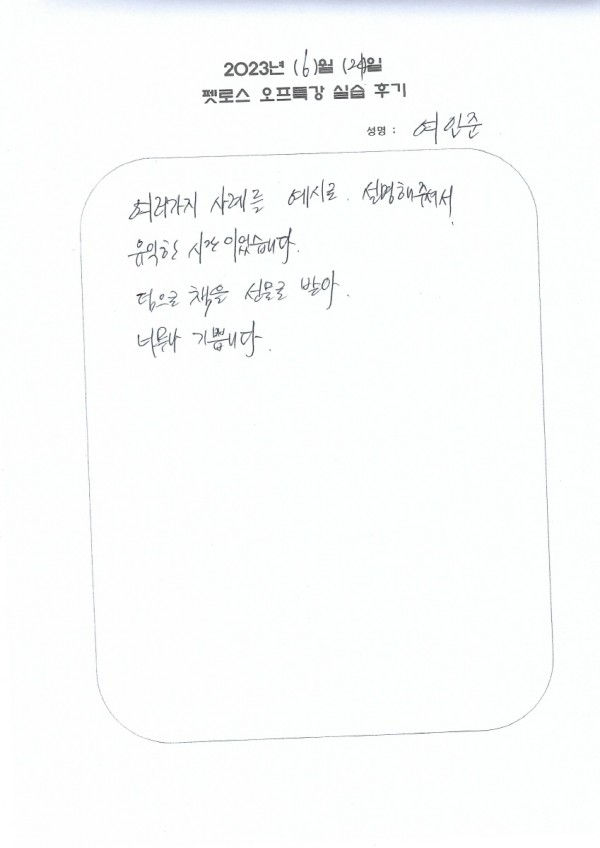 2023년 (6)월 (24)일
펫로스 오프특강 실습 후기
성명 : 여인준
여러가지 사례를 예시로 설명해주셔서
유익한 시간이었습니다.
덤으로 책을 선물로 받아.
너무나 기쁩니다.